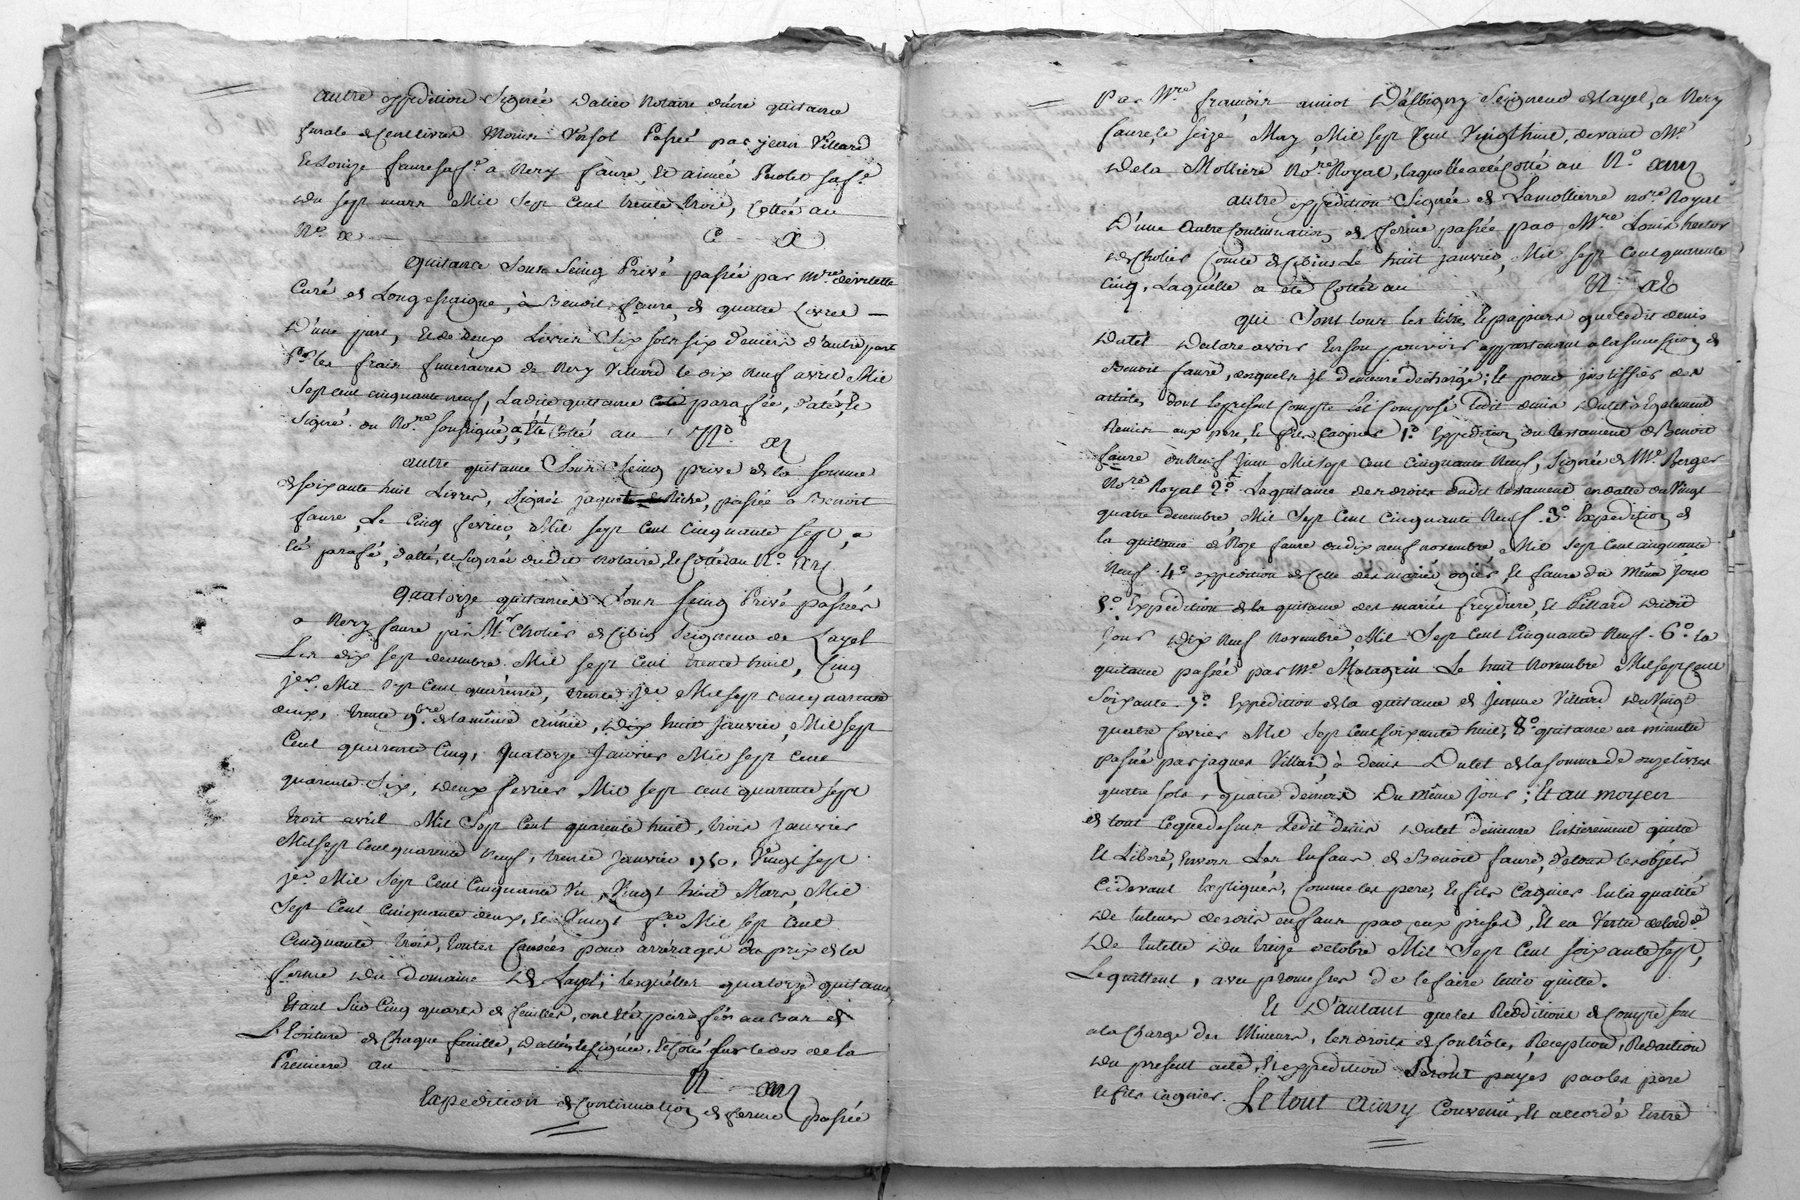 autre expedition Signée Dalin Notaire d'une quitance
finale de cent livres moins passée par jean Villard
et Louize faure sa f.e a Rery faure, Et aimée sa f.e
du sept mars Mil Sept Cent trente trois, Cottée au
N.o x C x
Quitance Sous Seing Privé passée par M.re devilette
Curé de Longessaigne, à Benoit faure, de quatre Livres
D'une part, Et de deux Livres Six sols six deniers d'autre part
P.r les frais funeraires de Rery Villard le dix Neuf avril Mil
Sept cent cinquante neuf, Ladite quitance parafée, datée, Et
Signée du No.re soussigné, a été Cotté au N.o xI
autre quitance Sous Seing privé de la somme
de soixante huit Livres, Signée jaquet, passée a Benoit
faure, Le Cinq fevrier, Mil sept cent cinquante sept, a
été parafé, datté, et Signée dudit Notaire, et Cotté au N.o XII
Quatorze quitances Sous Seing Privé passées
a Rery faure par M.r Cholier de Cibin Seigneur de Layel
Les dix sept decembre Mil sept cent trente huit, Cinq
j.er Mil sept cent quarente, trente j.er Mil sept cent quarante
deux, trente 9.bre de la même année, dix huit Janvier, Mil sept
Cent quarante Cinq, Quatorze Janvier Mil sept Cent
quarente Six, deux fevrier Mil sept cent quarente sept
trois avril Mil Sept Cent quarente huit, trois Janvier
Mil sept Cent quarente Neuf, trente Janvier 1750, Vingt sept
j.er Mil Sept Cent Cinquante Un, Vingt huit Mars, Mil
Sept Cent Cinquante deux, Et Vingt f.er Mil Sept Cent
Cinquante trois, toutes Causées pour arrerages du prix de la
ferme du Domaine de Layel; lesquelles quatorze quitances
Etant Sur Cinq quarts de feuilles, ont été parafées au Bas de
L'Ecriture de Chaque feuille, dattées et Signée, Et Cotté sur le dos de la
Premiere au N XIII
Expedition de continuation de ferme passée
Par M.re françois amiot D'albigny Seigneur de Layel, a Rery
faure, le Seize May Mil sept Cent Vingt huit, devant M.e
Dela Molliere No.re Royal, laquelle a été Cotté au N.o XIIII
autre expedition Signée de Lamollierre no.re Royal
D'une autre Continuation de ferme passée par M.re Louis hector
de Cholier Comte de Cibins Le huit janvier Mil sept Cent quarente
Cinq, Laquelle a été Cottée au N XV
qui Sont tous les titres et papiers que ledit denis
Dutel declare avoir En son pouvoir appartenant a la succession de
Benoit faure, desquels il demeure dechargé; Et pour justiffier des
articles dont le present Compte Est Composé ledit denis Dutel a Egalement
Remis aux pere, Et fils Cagnier 1.o Expedition du testament de Benoit
faure du neuf Juin Mil sept Cent Cinquante Neuf, Signée de M.e Berger
No.re Royal 2.o La quitance des droits dudit testament en datte du Vingt
quatre decembre Mil Sept Cent Cinquante Neuf. 3.o Expedition de
la quitance de Roze faure du dix neuf novembre, Mil Sept Cent cinquante
Neuf. 4.o expedition de Celle des mariés ogier Et faure du même Jour
5.o Expedition de la quitance des mariés freydiere, Et Villard dudit
Jour dix Neuf Novembre, Mil Sept Cent Cinquante Neuf. 6.o la
quitance passée par M.e Matagrin Le huit Novembre Mil sept Cent
Soixante. 7.o Expedition de la quitance de Jeanne Villard du Vingt
quatre fevrier Mil Sept Cent soixante huit, 8.o quitance en minutte
passée par jaques Villard, à denis Dutel de la somme de onze livres
quatre sols, quatre deniers Du même Jour; Et au moyen
de tout Ce que dessus Ledit denis Dutel demeure Entierement quitte
Et Liberé, Envers Les Enfans de Benoit faure, de tous les objets
Cidevant Expliqués, Comme les pere, Et fils Cagnier En la qualité
De tuteurs desdits enfans par eux prises, Et en Vertu de
De tutelle du treize octobre Mil Sept Cent soixante sept,
Le quittent, avec promesses de le faire tenir quitte.
Et D'autant que les Redditions de Compte sont
a la Charge des Mineurs, les droits de Contrôle, Réception, Redaction
Du present acte, Et expedition Seront payés par les pere
Et fils Cagnier. Le tout ainsy Convenû, Et accordé Entre